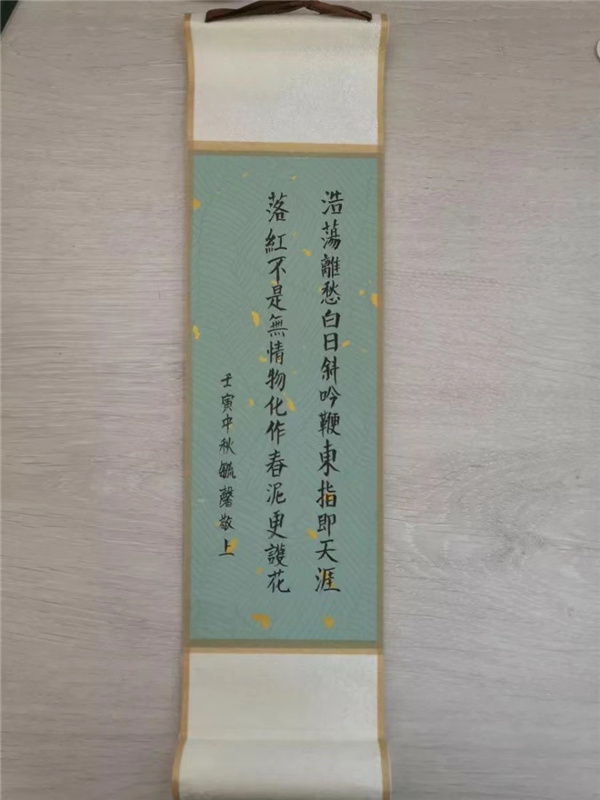 浩蕩離愁白日斜吟鞭東指即天涯
落紅不是無情物化作春泥更護花
壬寅中秋毓馨敬上